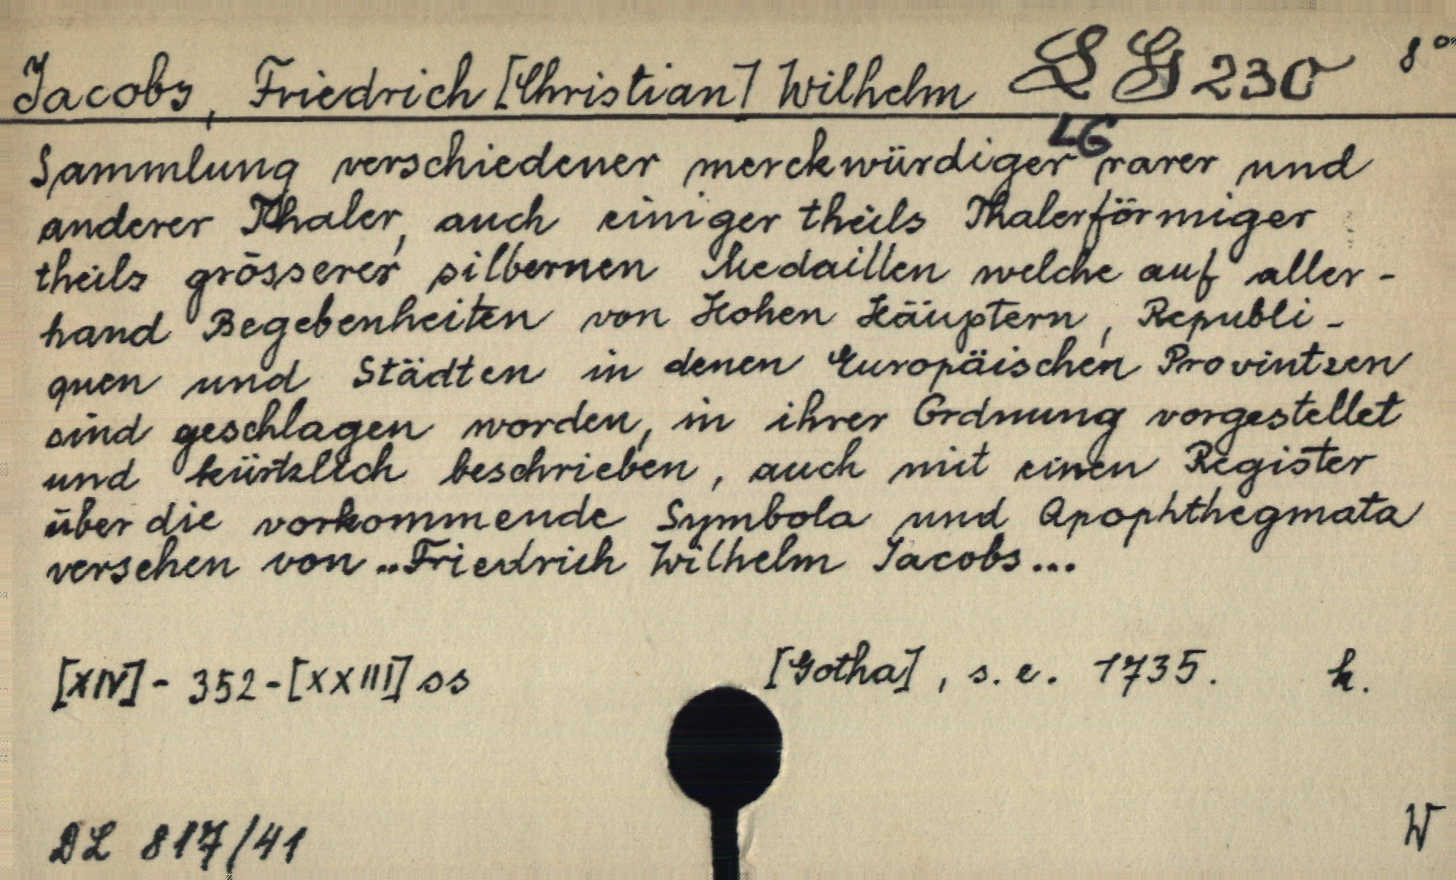 Jacobs, Friedrich [Christian] Wilhelm LG 230 8°
LG
Sammlung verschiedener merckwürdiger rarer und
anderer Thaler, auch einiger theils Thalerförmiger
theils grösserer silbernen Medaillen welche auf aller-
hand Begebenheiten von Hohen Häuptern, Republi-
quen und Städten in denen Europäischen Provintzen
sind geschlagen worden, in ihrer Ordnung vorgestellet
und kürtzlich beschrieben, auch mit einen Register
über die vorkommende Symbola und Apophthegmata
versehen von .. Friedrich Wilhelm Jacobs...
[XIV] - 352 - [XXIII] ss [Gotha], s. e. 1735. k.
DL 817/41 W